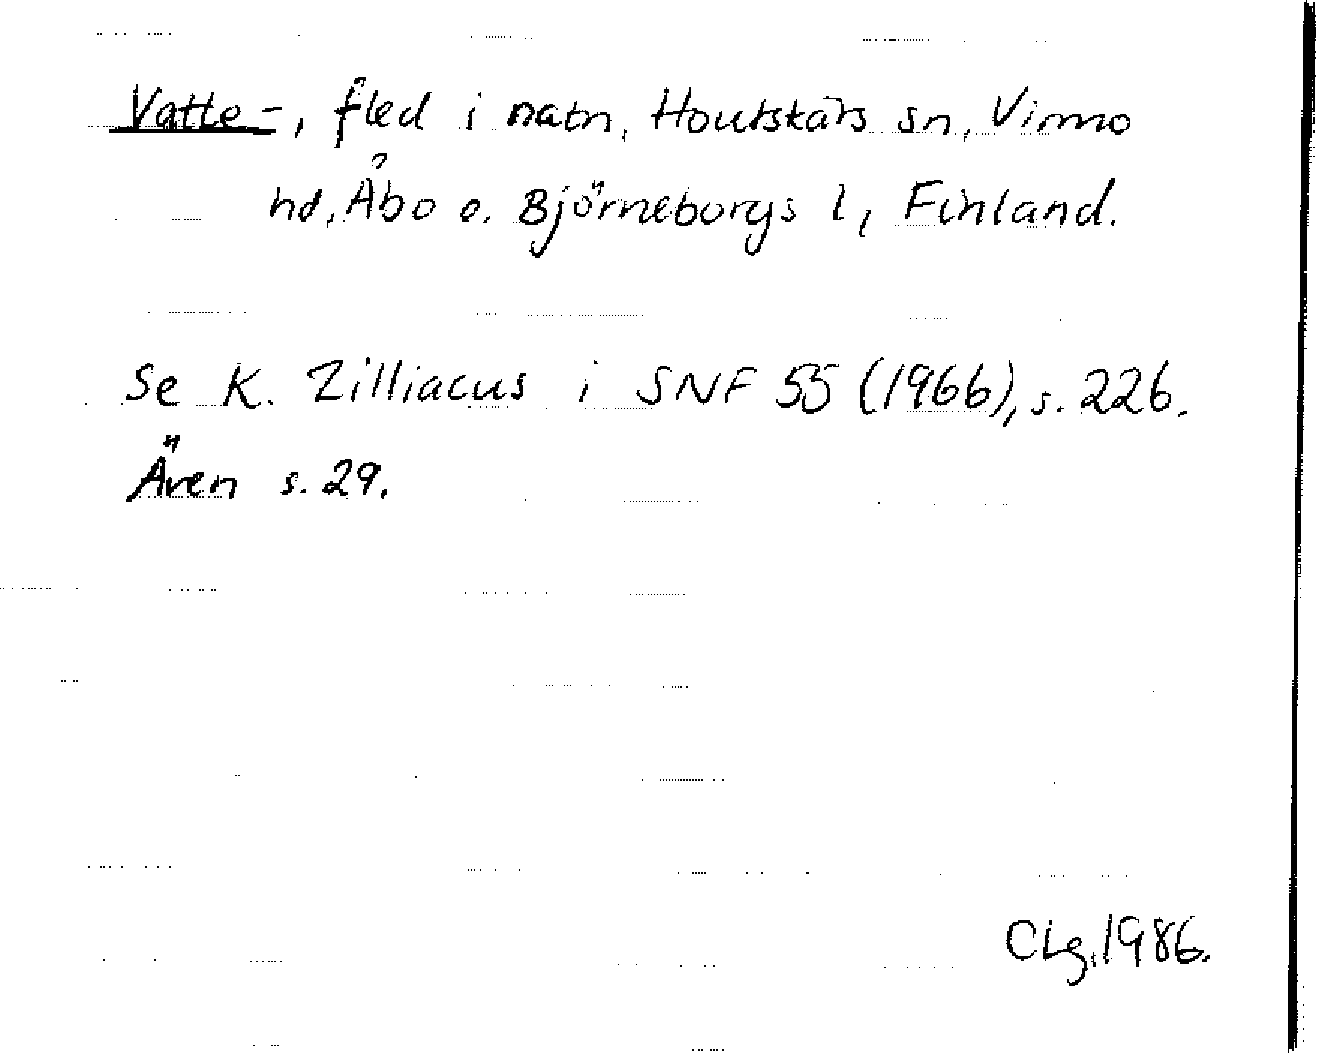 Vatte-, fled i natn, Houtskärs sn, Virmo
hd, Åbo o. Björneborgs l, Finland.
Se K. Zilliacus i SNF 55 (1966), s. 226.
Även s. 29.
CLg. 1986.